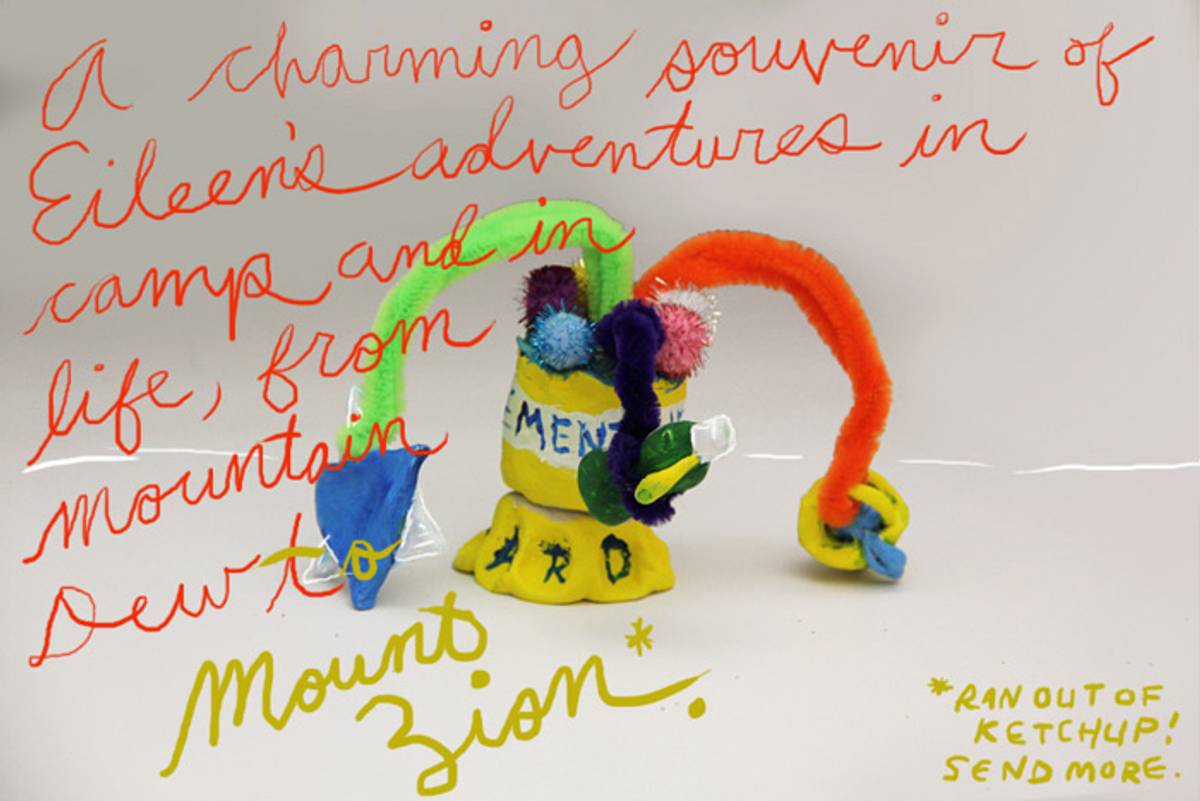 A charming souvenir of
Eileen's adventures in
camp and in
life, from
mountain
Dew to
Mount
Zion*.
EMENT
ARD
*RAN OUT OF
KETCHUP!
SEND MORE.